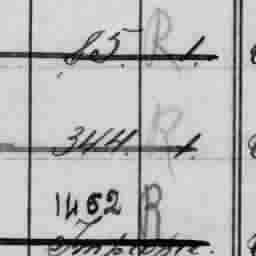 85. R 1.
344. R 1.
1462 R